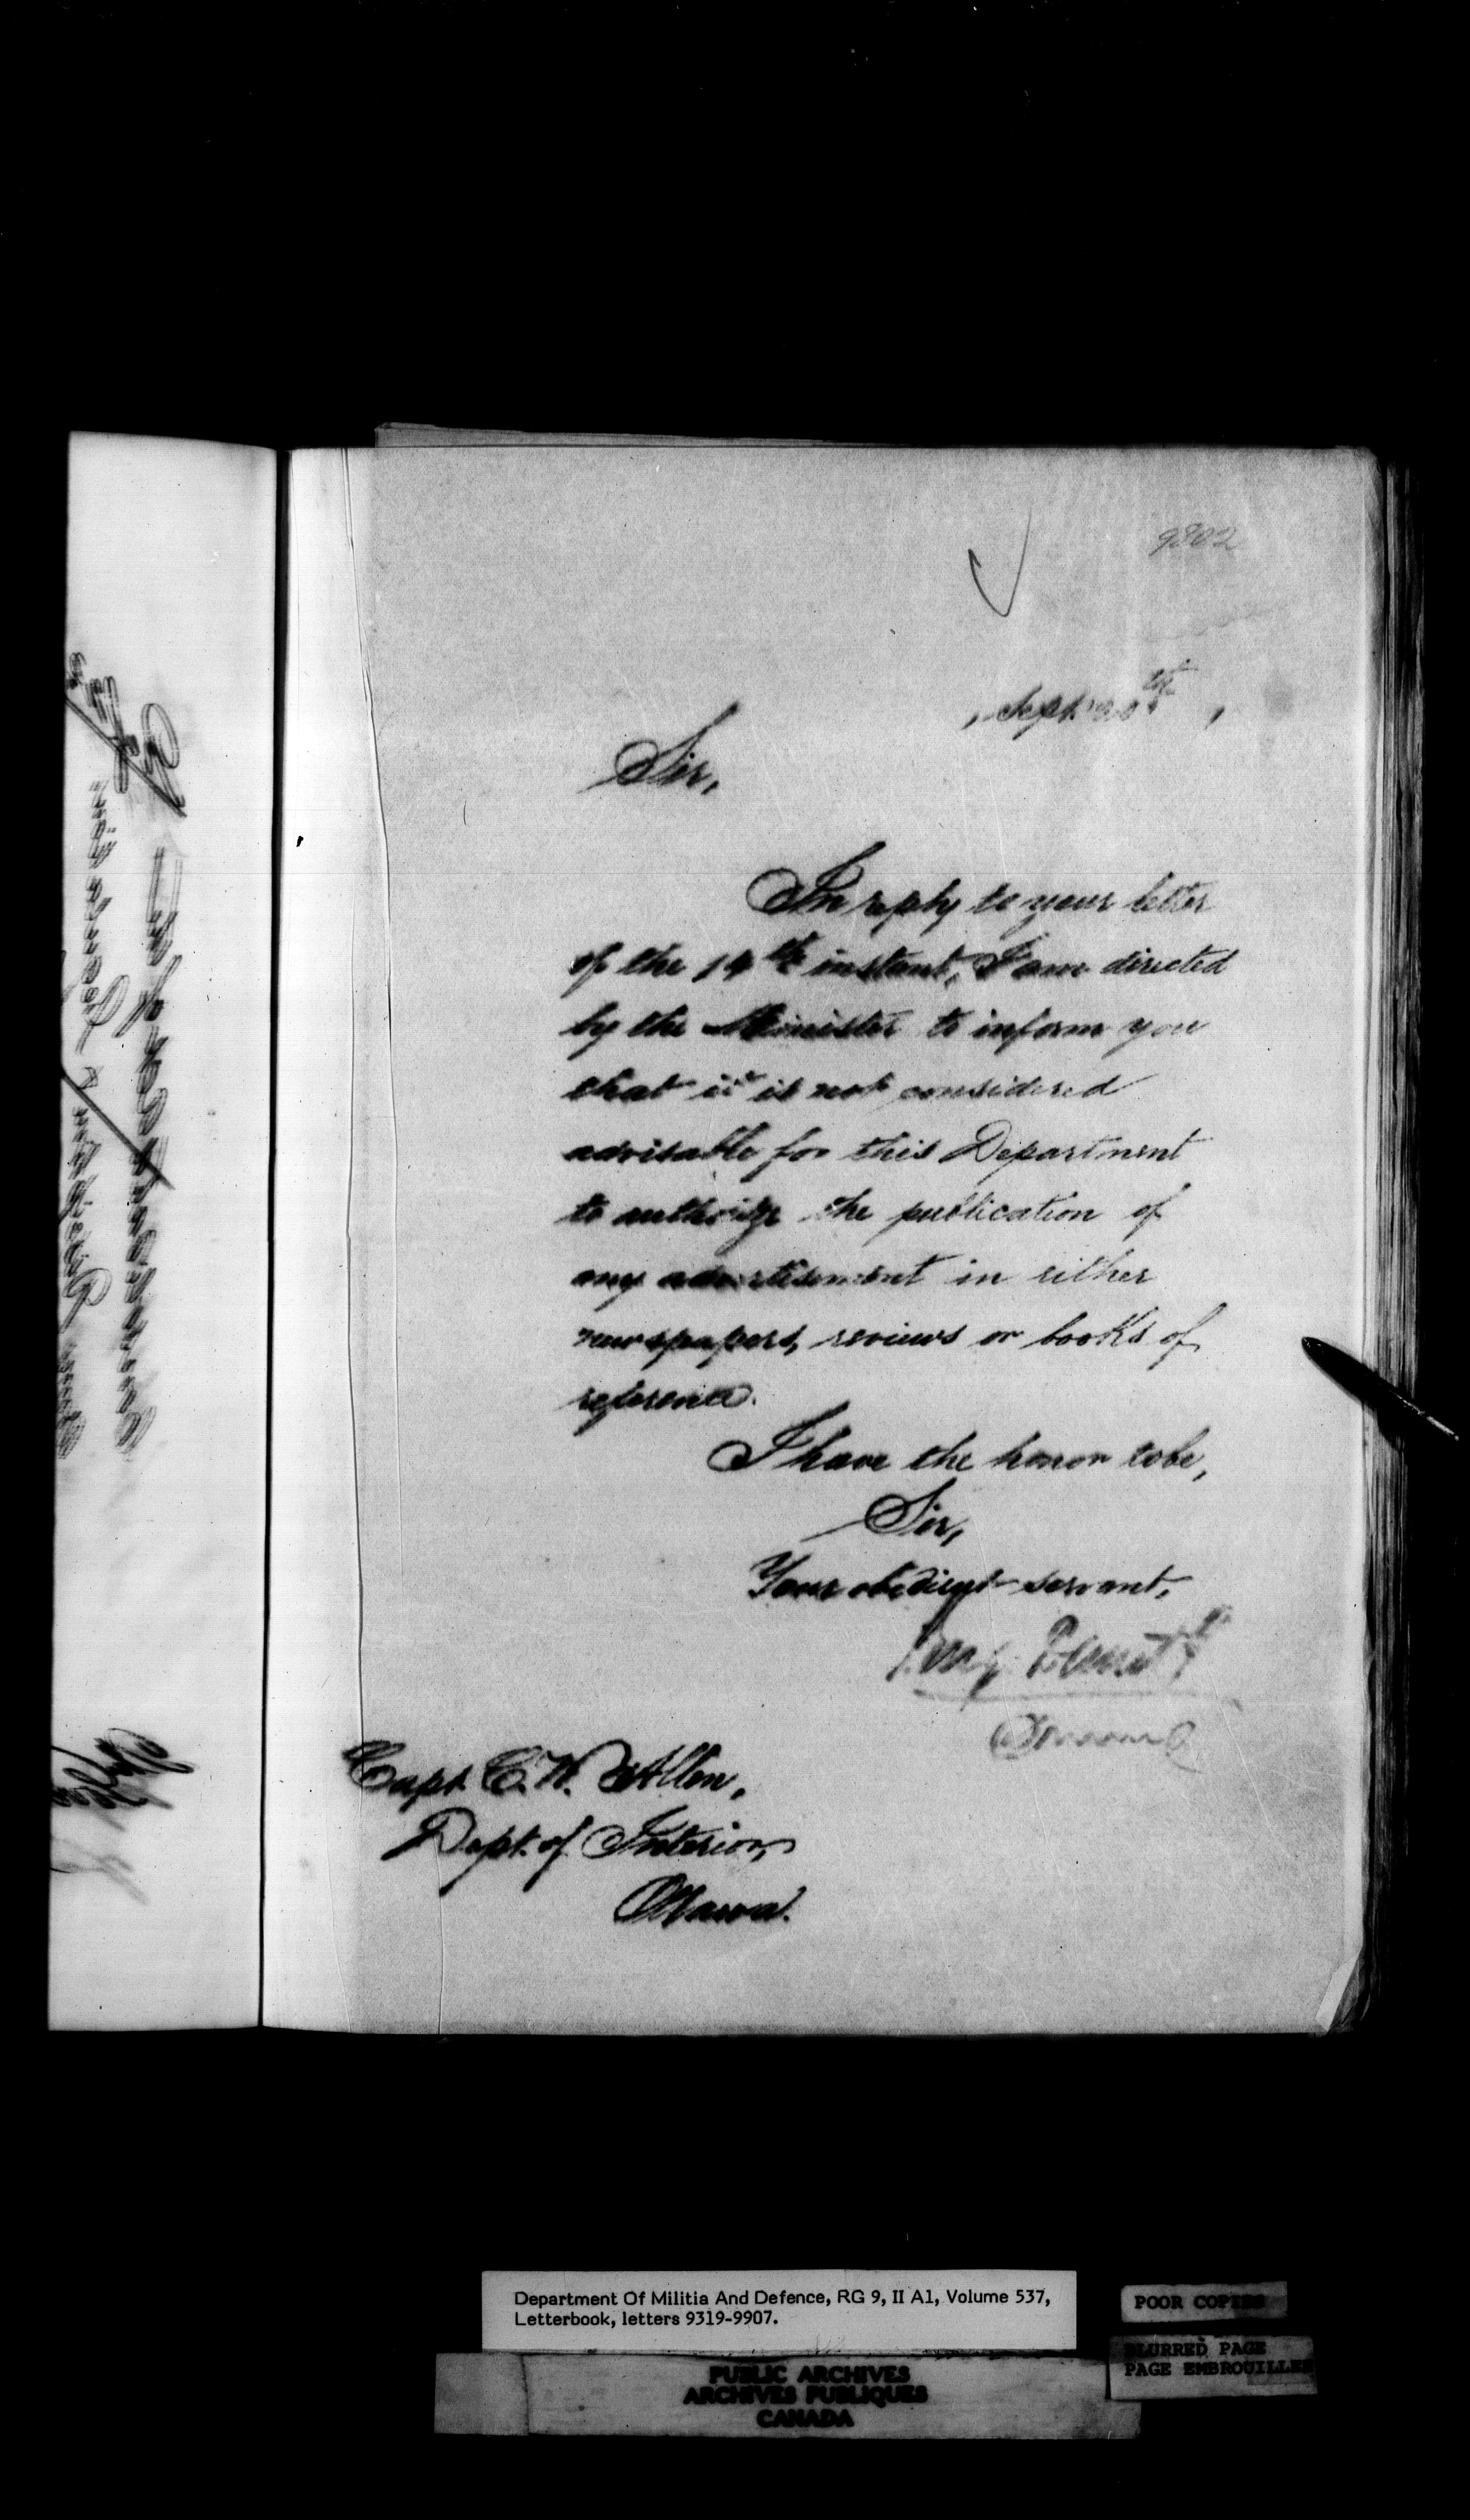 9802
Sept 20th,
Sir,
In reply to your letter
of the 14th instant, I am directed
by the Minister to inform you
that it is not considered
advisable for this Department
to authorize the publication of
any advertisement in either
newspapers, reviews or books of
reference.
I have the honor to be,
Sir,
Your obedient servant,
Capt. C. W. Allen,
Dept. of Interior,
Ottawa.
Department Of Militia And Defence, RG 9, II A1, Volume 537,
Letterbook, letters 9319-9907.
POOR COPIES
BLURRED PAGE
PAGE EMBROUILLEE
PUBLIC ARCHIVES
ARCHIVES PUBLIQUES
CANADA